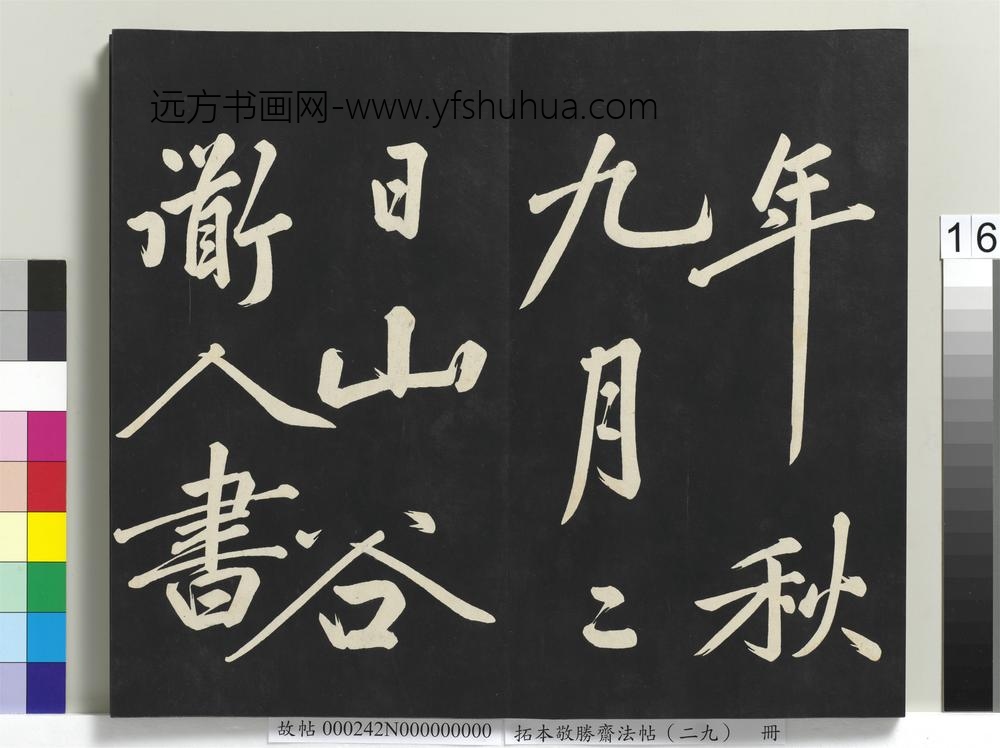 远方书画网-www.yfshuhua.com
年秋
九月二
日山谷
衟人書
16
故帖 000242N000000000
拓本敬勝齋法帖（二九） 冊